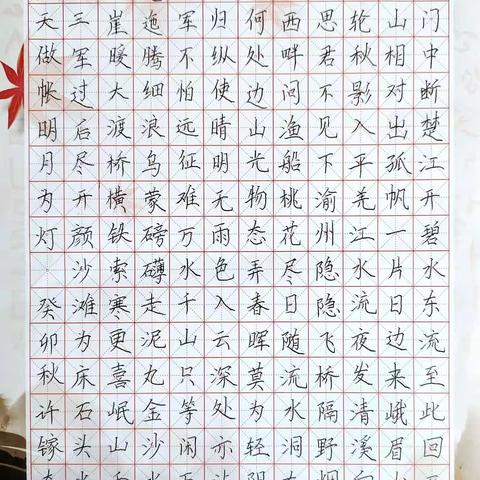 门中断楚江开碧水东流至此回两
山相对出孤帆一片日边来峨眉山
轮秋影入平羌江水流夜发清溪向
思君不见下渝州隐隐飞桥隔野烟
西畔问渔船桃花尽日随流水洞在
何处边山光物态弄春晖莫为轻阴
归纵使晴明无雨色入云深处亦沾
军不怕远征难万水千山只等闲五
迤腾细浪乌蒙磅礴走泥丸金沙水
崖暖大渡桥横铁索寒更喜岷山千
三军过后尽开颜沙滩为床石头
天做帐明月为灯癸卯秋许镓